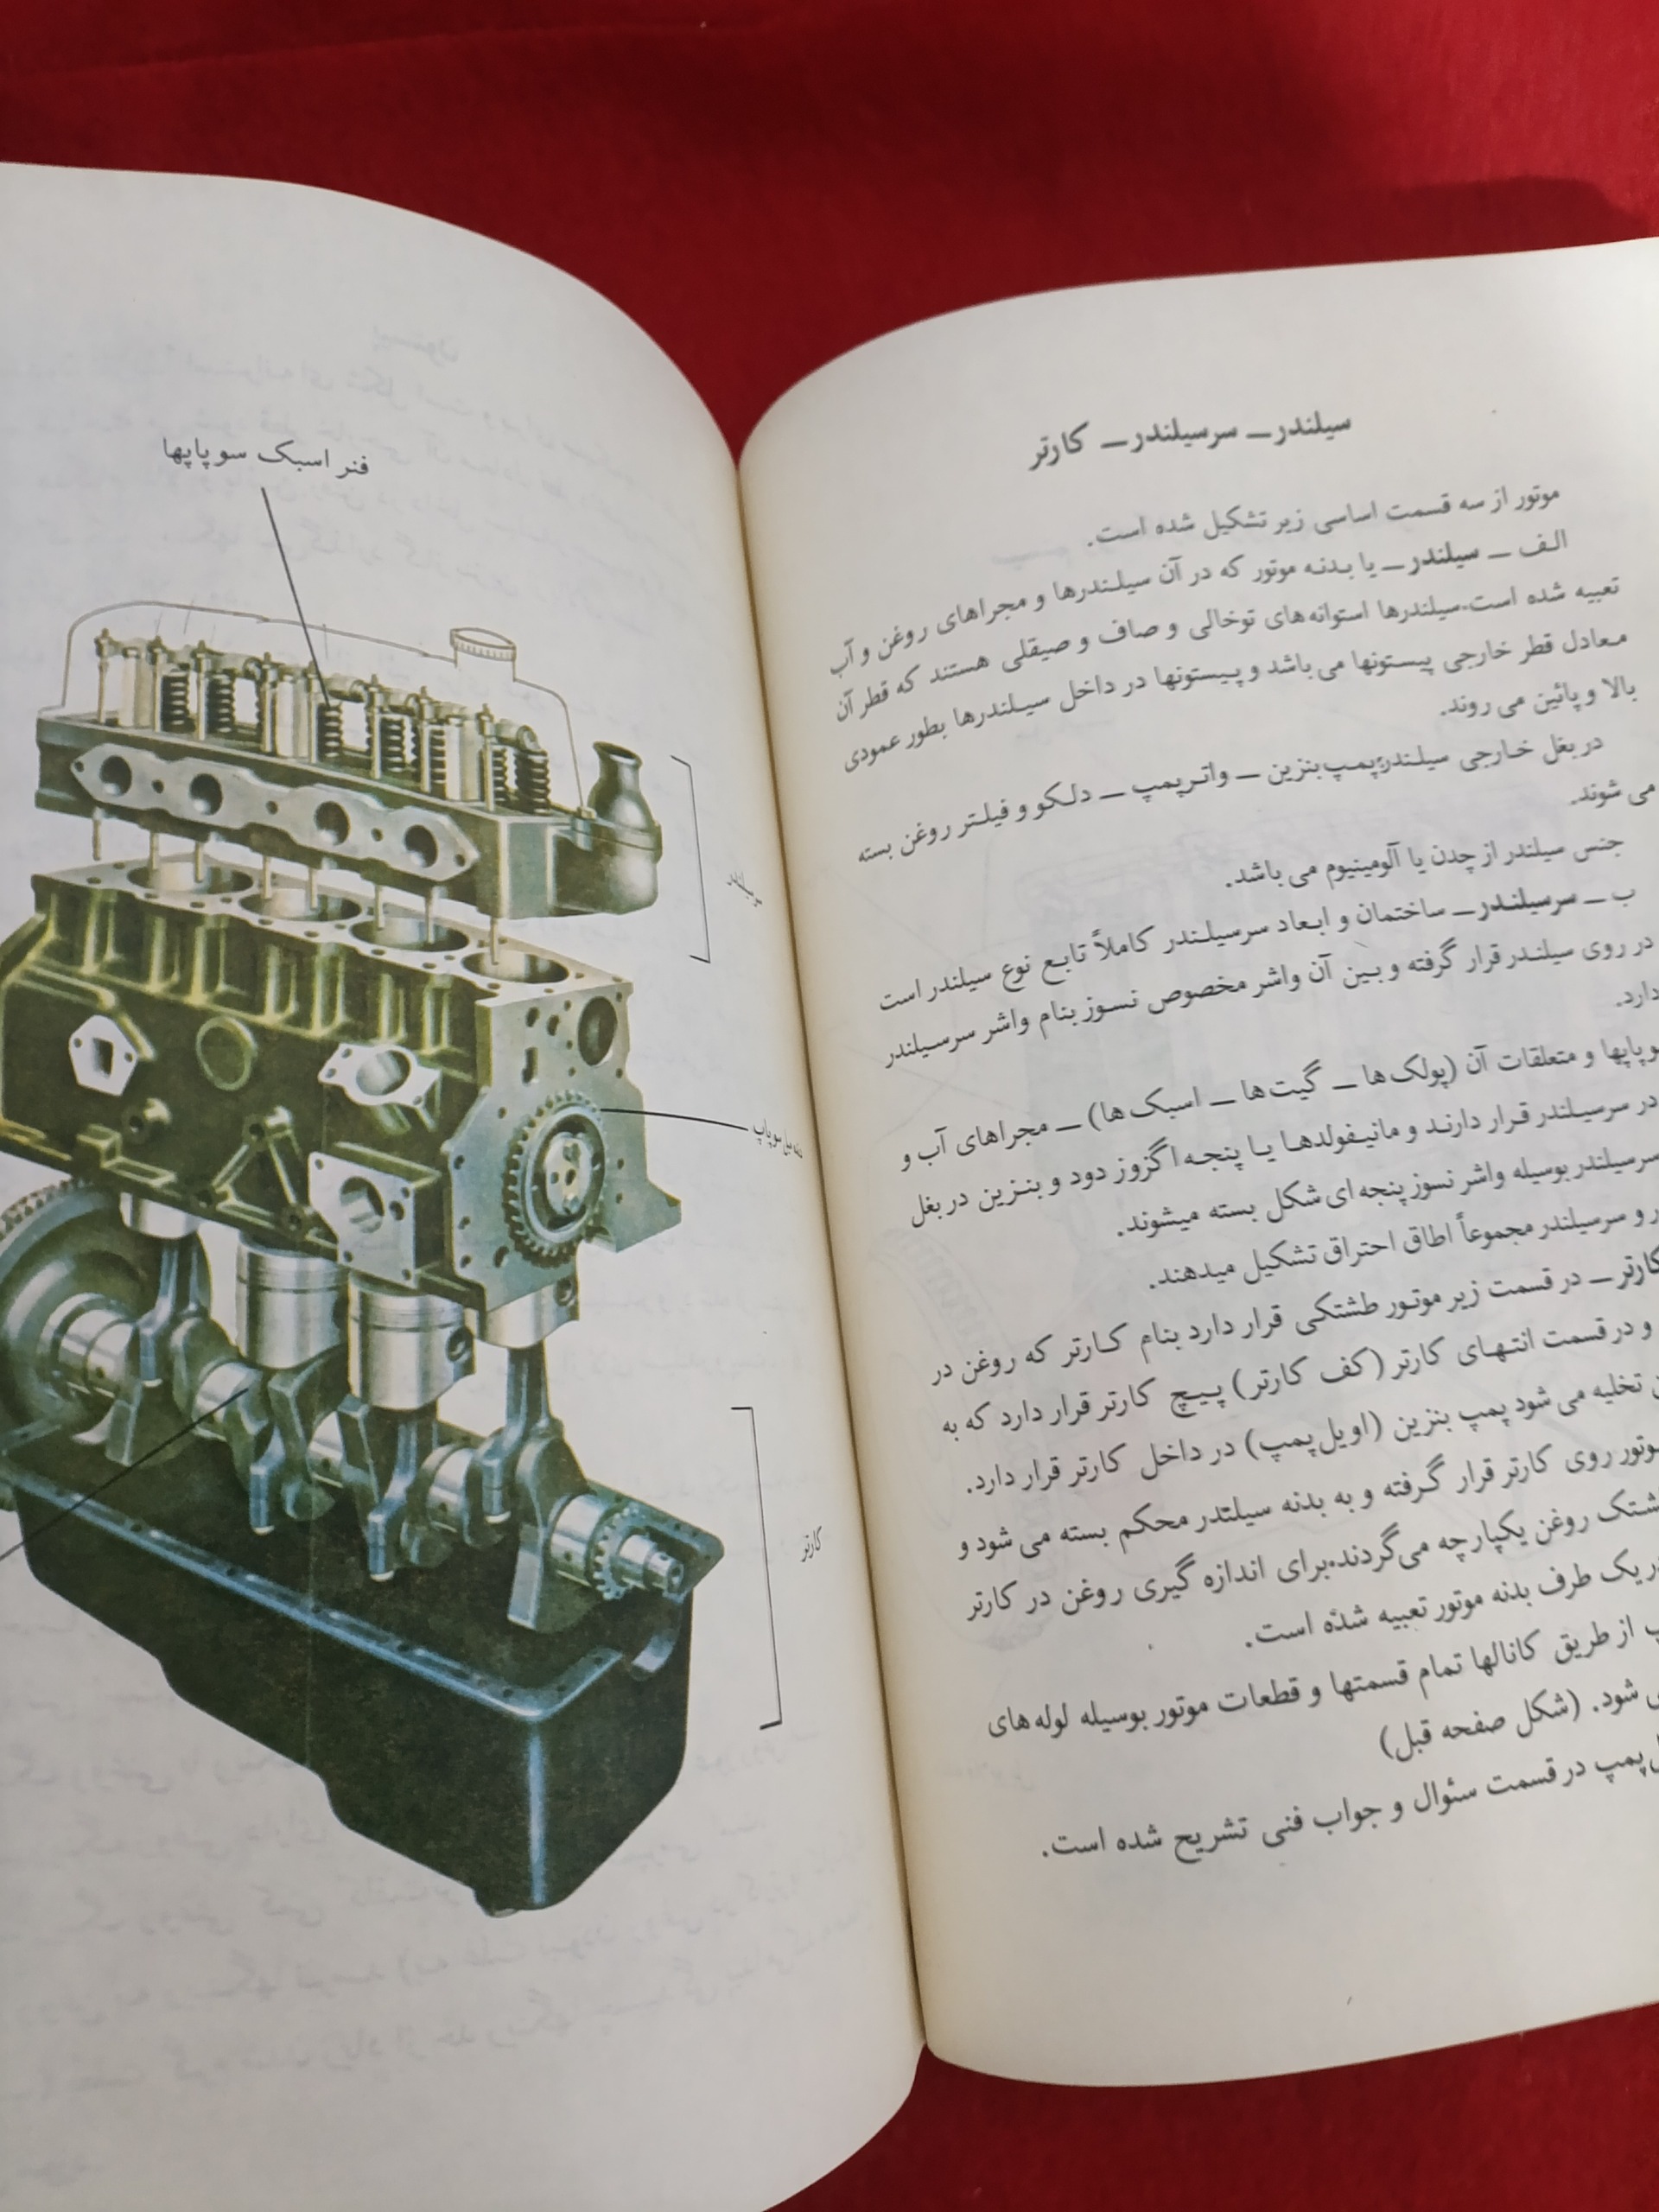 سیلندر ــ سرسیلندر ــ کارتر
موتور از سه قسمت اساسی زیر تشکیل شده است.
الف ــ سیلندر ــ یا بدنه موتور که در آن سیلندرها و مجراهای روغن و آب
تعبیه شده است.سیلندرها استوانه‌های توخالی و صاف و صیقلی هستند که قطر آن
معادل قطر خارجی پیستونها می‌باشد و پیستونها در داخل سیلندرها بطور عمودی
بالا و پائین می‌روند.
در بغل خارجی سیلندر پمپ بنزین ــ واترپمپ ــ دلکو و فیلتر روغن بسته
می‌شوند.
جنس سیلندر از چدن یا آلومینیوم می‌باشد.
ب ــ سرسیلندر ــ ساختمان و ابعاد سرسیلندر کاملاً تابع نوع سیلندر است
در روی سیلندر قرار گرفته و بین آن واشر مخصوص نسوز بنام واشر سرسیلندر
دارد.
و متعلقات آن (پولک‌ها ــ گیت‌ها ــ اسبک‌ها) ــ مجراهای آب و
در سرسیلندر قرار دارند و مانیفولدها یا پنجه اگزوز دود و بنزین در بغل
سرسیلندر بوسیله واشر نسوز پنجه‌ای شکل بسته میشوند.
و سرسیلندر مجموعاً اطاق احتراق تشکیل میدهند.
کارتر ــ در قسمت زیر موتور طشتکی قرار دارد بنام کارتر که روغن در
و در قسمت انتهای کارتر (کف کارتر) پیچ کارتر قرار دارد که به
تخلیه می‌شود پمپ بنزین (اویل‌پمپ) در داخل کارتر قرار دارد.
روی کارتر قرار گرفته و به بدنه سیلندر محکم بسته می‌شود و
روغن یکپارچه می‌گردند.برای اندازه گیری روغن در کارتر
یک طرف بدنه موتور تعبیه شده است.
از طریق کانالها تمام قسمتها و قطعات موتور بوسیله لوله‌های
شود. (شکل صفحه قبل)
پمپ در قسمت سئوال و جواب فنی تشریح شده است.
فنر اسبک سوپاپها
سرسیلندر
سوپاپ
کارتر